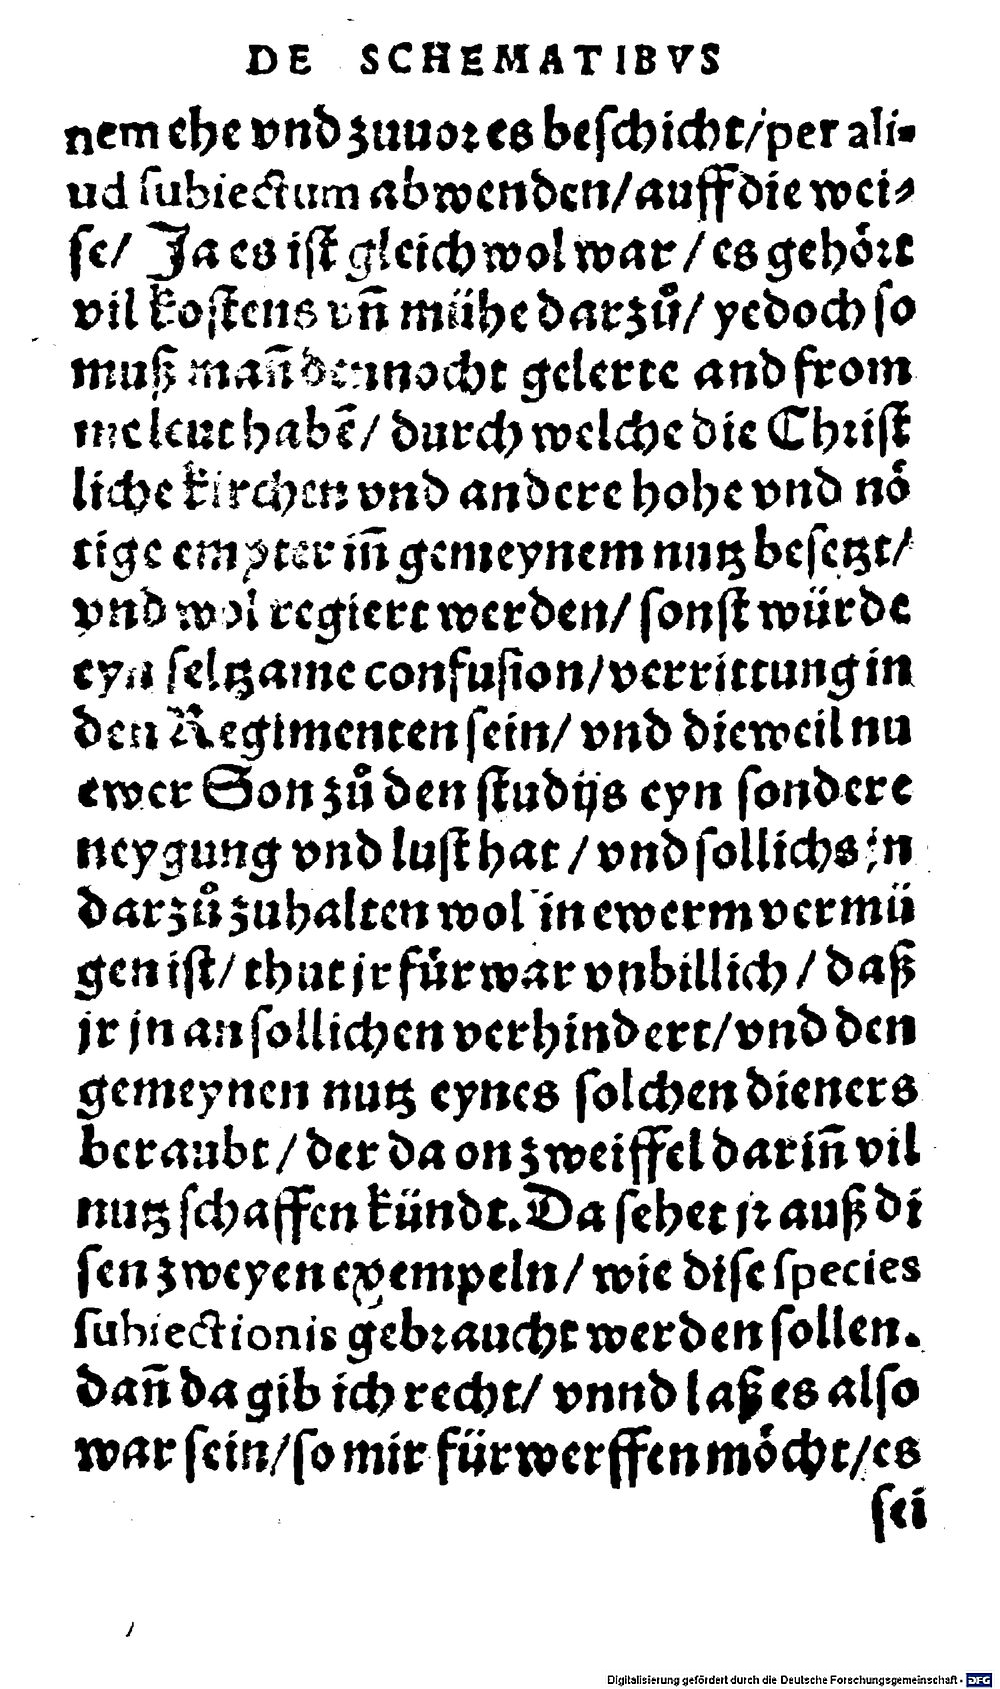 DE SCHEMATIBVS
nem ehe vnd zuuor es beſchicht/per ali⸗
ud ſubiectum abwenden/auff die wei⸗
ſe/ Ja es iſt gleich wol war / es gehoͤrt
vil koſtens vn̄ mühe darzuͦ/ yedoch ſo
muſz man̄ dennocht gelerte and from
me leut habē/ durch welche die Chriſt
liche kirchen vnd andere hohe vnd noͤ
tige empter in̄ gemeynem nutz beſetzt/
vnd wol regiert werden/ ſonſt würde
eyn ſeltzame confuſion/verrittung in
den Regimenten ſein/ vnd dieweil nu
ewer Son zuͦ den ſtudijs eyn ſondere
neygung vnd luſt hat / vnd ſollichs in
darzuͦ zuhalten wol in ewerm vermü
gen iſt/ thut jr fürwar vnbillich / daß
jr jn an ſollichen verhindert/vnd den
gemeynen nutz eynes ſolchen dieners
beraubt / der da on zweiffel darin̄ vil
nutz ſchaffen kündt. Da ſehet jr auß di
ſen zweyen exempeln/ wie diſe ſpecies
ſubiectionis gebraucht werden ſollen.
dan̄ da gib ich recht/ vnnd laß es alſo
war ſein/ſo mir fürwerffen moͤcht/es
ſei
Digitalisierung gefördert durch die Deutsche Forschungsgemeinschaft - DFG